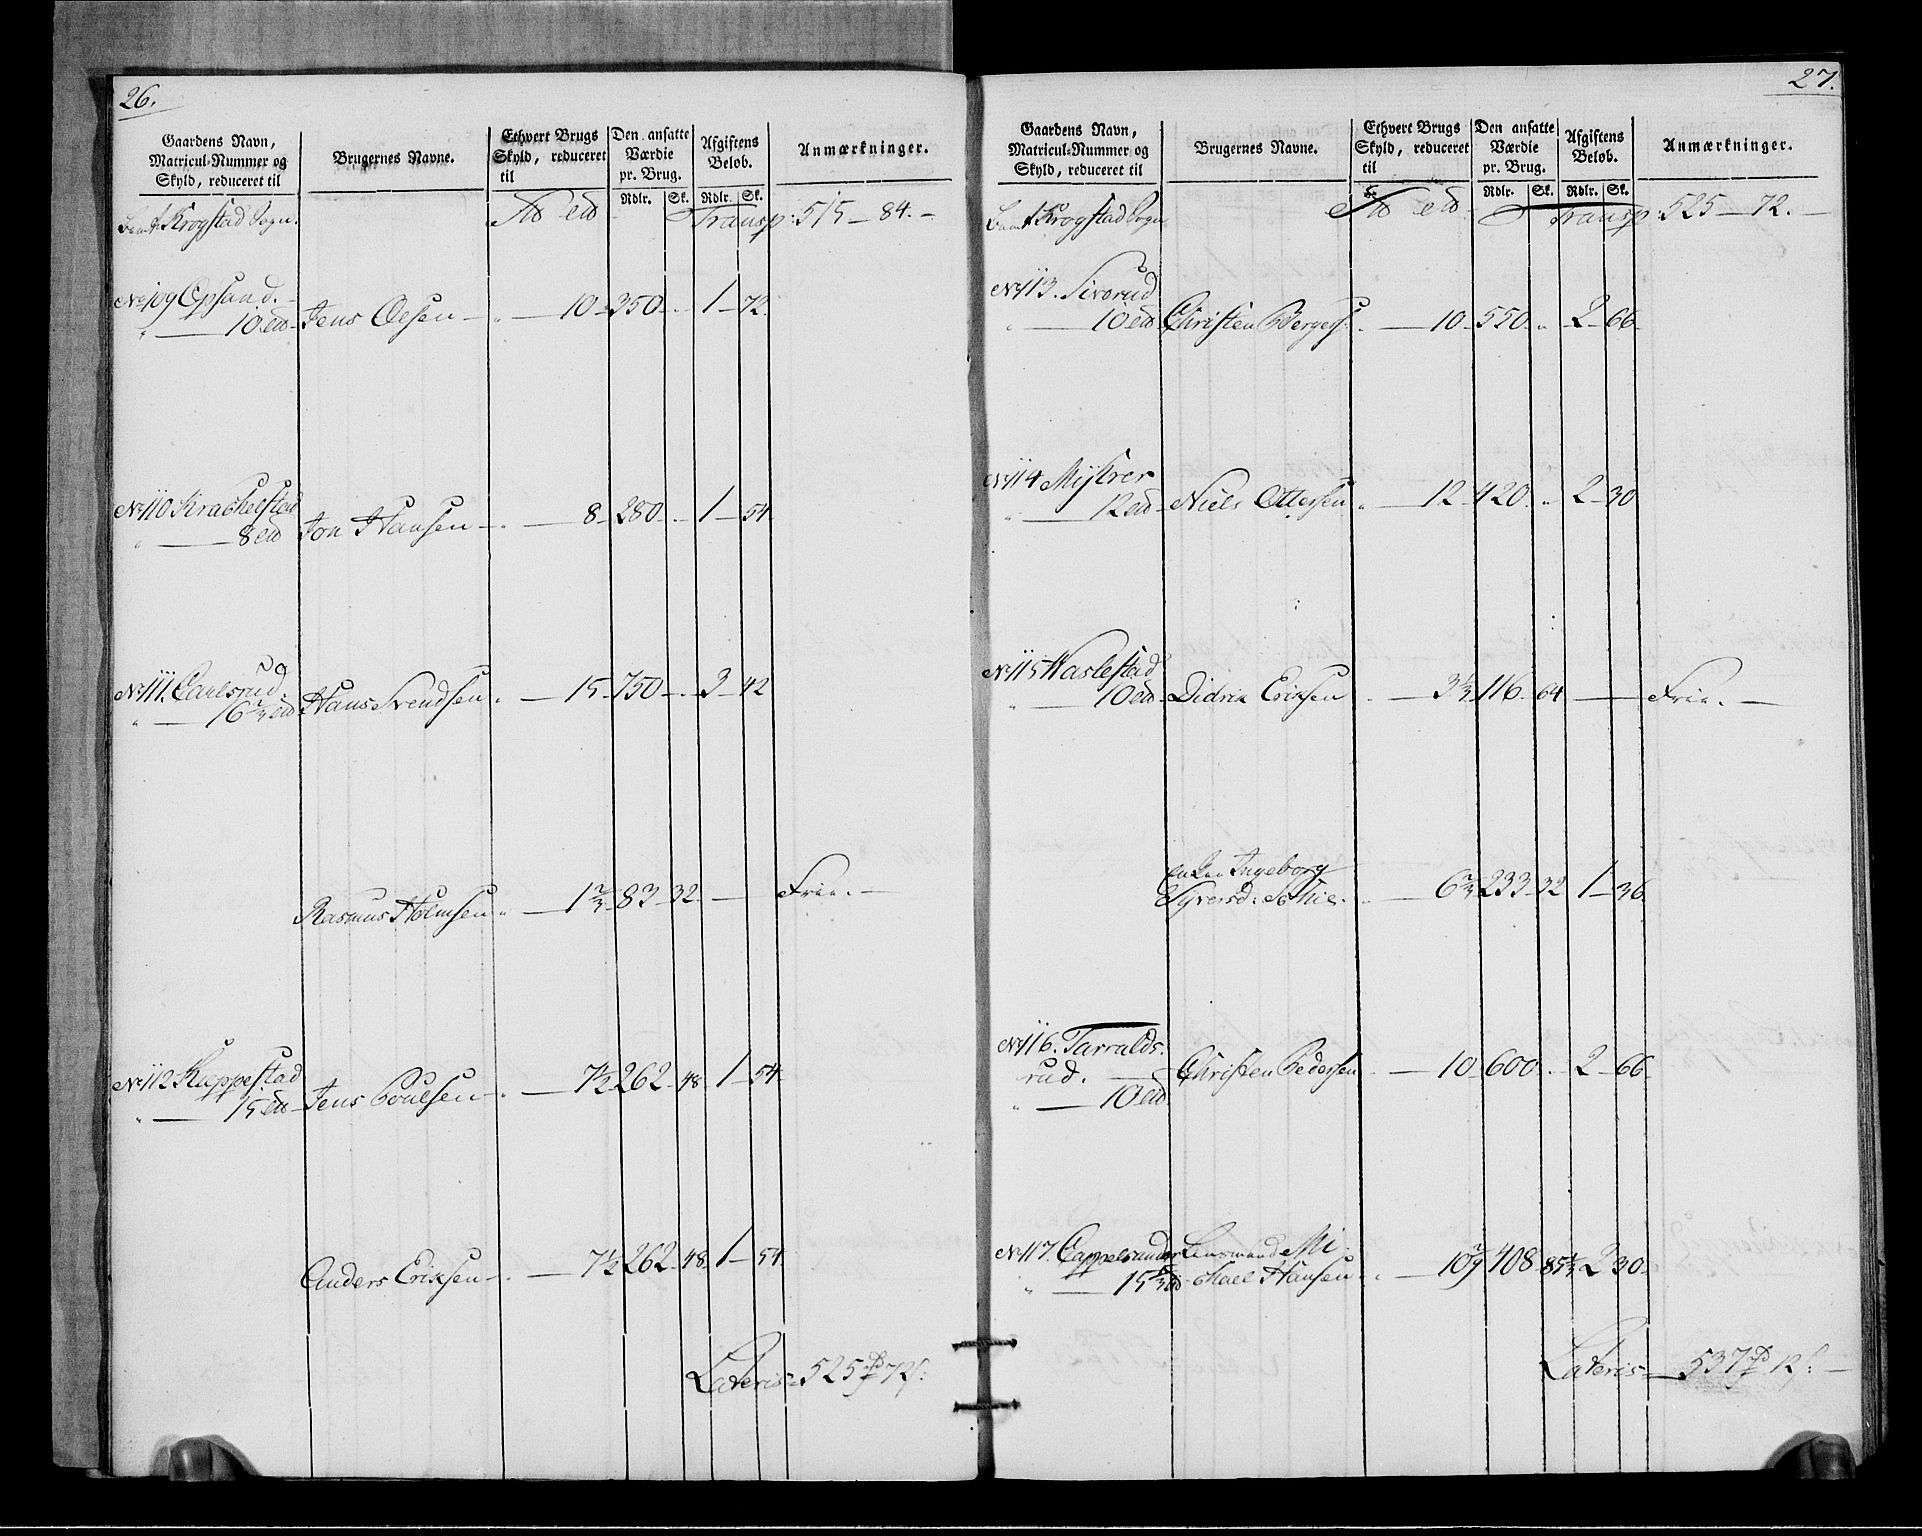 26.
Gaardens Navn,
Matricul-Nummer og
Skyld, reduceret til
Brugernes Navne.
Ethvert Brugs
Skyld, reduceret
til
Den ansatte
Værdie
pr. Brug.
Rdlr. Sk.
Afgiftens
Beløb.
Rdlr. Sk.
Anmærkninger.
Krogstad Sogn. Transp: 515 - 84. -
No 109 Opsand.
10 Jens Olsen - 10 - 350 - 1 - 72
No 110 Krachelstad
8 Jon Hansen - 8 - 280 - 1 - 54
No 111. Carlsrud.
16 2/3 Hans Svendsen - 15 - 750 - 3 - 42
Rasmus Holmsen - 1 2/3 - 83 - 32 - Frie. -
No 112 Kuppestad
15 Jens Poulsen - 7 1/2 262 - 48 1 - 54
Anders Erichsen - 7 1/2 262 - 48 1 - 54
Lateris 525 72
27.
Gaardens Navn,
Matricul-Nummer og
Skyld, reduceret til
Brugernes Navne.
Ethvert Brugs
Skyld, reduceret
til
Den ansatte
Værdie
pr. Brug.
Rdlr. Sk.
Afgiftens
Beløb.
Rdlr. Sk.
Anmærkninger.
Krogstad Sogn Transp: 525 - 72. -
No 113. Siverud
10 Christen Bergers: - 10 - 550 - 2 - 66
No 114 Mykrer
12 Niels Ottersen - 12 - 420 - 2 - 30
No 115 Haslestad
10 Didrik Erichsen - 3 1/3 116 - 64 - Frie. -
Enken Ingeborg
Syversd: Sothie. - 6 2/3 233 - 32 1 - 36
No 116. Tarralds-
rud. Christen Pedersen - 10 - 600 - 2 - 66
10
No 117. Cappelsunder Lensmand Mi-
15 chael Hansen - 10 408 85 1/3 2 30
Lateris - 537 12